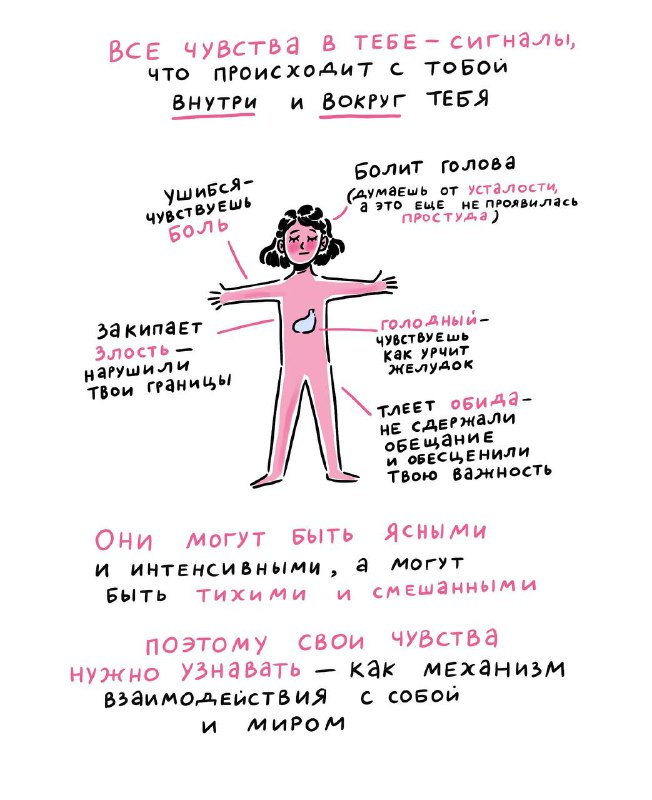 ВСЕ ЧУВСТВА В ТЕБЕ – СИГНАЛЫ,
ЧТО ПРОИСХОДИТ С ТОБОЙ
ВНУТРИ И ВОКРУГ ТЕБЯ
УШИБСЯ–
ЧУВСТВУЕШЬ
БОЛЬ
БОЛИТ ГОЛОВА
(ДУМАЕШЬ ОТ УСТАЛОСТИ,
А ЭТО ЕЩЕ НЕ ПРОЯВИЛАСЬ
ПРОСТУДА)
ЗАКИПАЕТ
ЗЛОСТЬ –
НАРУШИЛИ
ТВОИ ГРАНИЦЫ
ГОЛОДНЫЙ–
ЧУВСТВУЕШЬ
КАК УРЧИТ
ЖЕЛУДОК
ТЛЕЕТ ОБИДА–
НЕ СДЕРЖАЛИ
ОБЕЩАНИЕ
И ОБЕСЦЕНИЛИ
ТВОЮ ВАЖНОСТЬ
ОНИ МОГУТ БЫТЬ ЯСНЫМИ
И ИНТЕНСИВНЫМИ, А МОГУТ
БЫТЬ ТИХИМИ И СМЕШАННЫМИ
ПОЭТОМУ СВОИ ЧУВСТВА
НУЖНО УЗНАВАТЬ – КАК МЕХАНИЗМ
ВЗАИМОДЕЙСТВИЯ С СОБОЙ
И МИРОМ